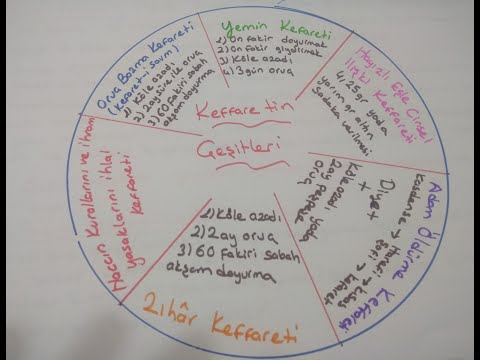 Keffaretin
Çeşitleri
Oruç Bozma Kefareti
(Kefaret-i savm)
1) Köle azadı
2) 2 ay süre ile oruç
3) 60 fakiri sabah
akşam doyurma
Yemin Kefareti
1) On fakir doyurmak
2) On fakir giydirmek
3) Köle azadı
4) 3 gün oruç
Hayızlı Eşle Cinsel
İlişki Keffareti
4,25 gr yada
yarım gr altın
Sadaka verilmesi
Adam Öldürme Keffareti
Kasdense → Hanefi → kısas
Şafi → kefaret
+
Diyet
+
Köle azadı yada
2 ay peşpeşe
Oruç
1) Köle azadı
2) 2 ay oruç
3) 60 fakiri sabah
akşam doyurma
Zıhâr Keffareti
Haccın Kurallarını ve ihram
yasaklarını ihlal
keffareti